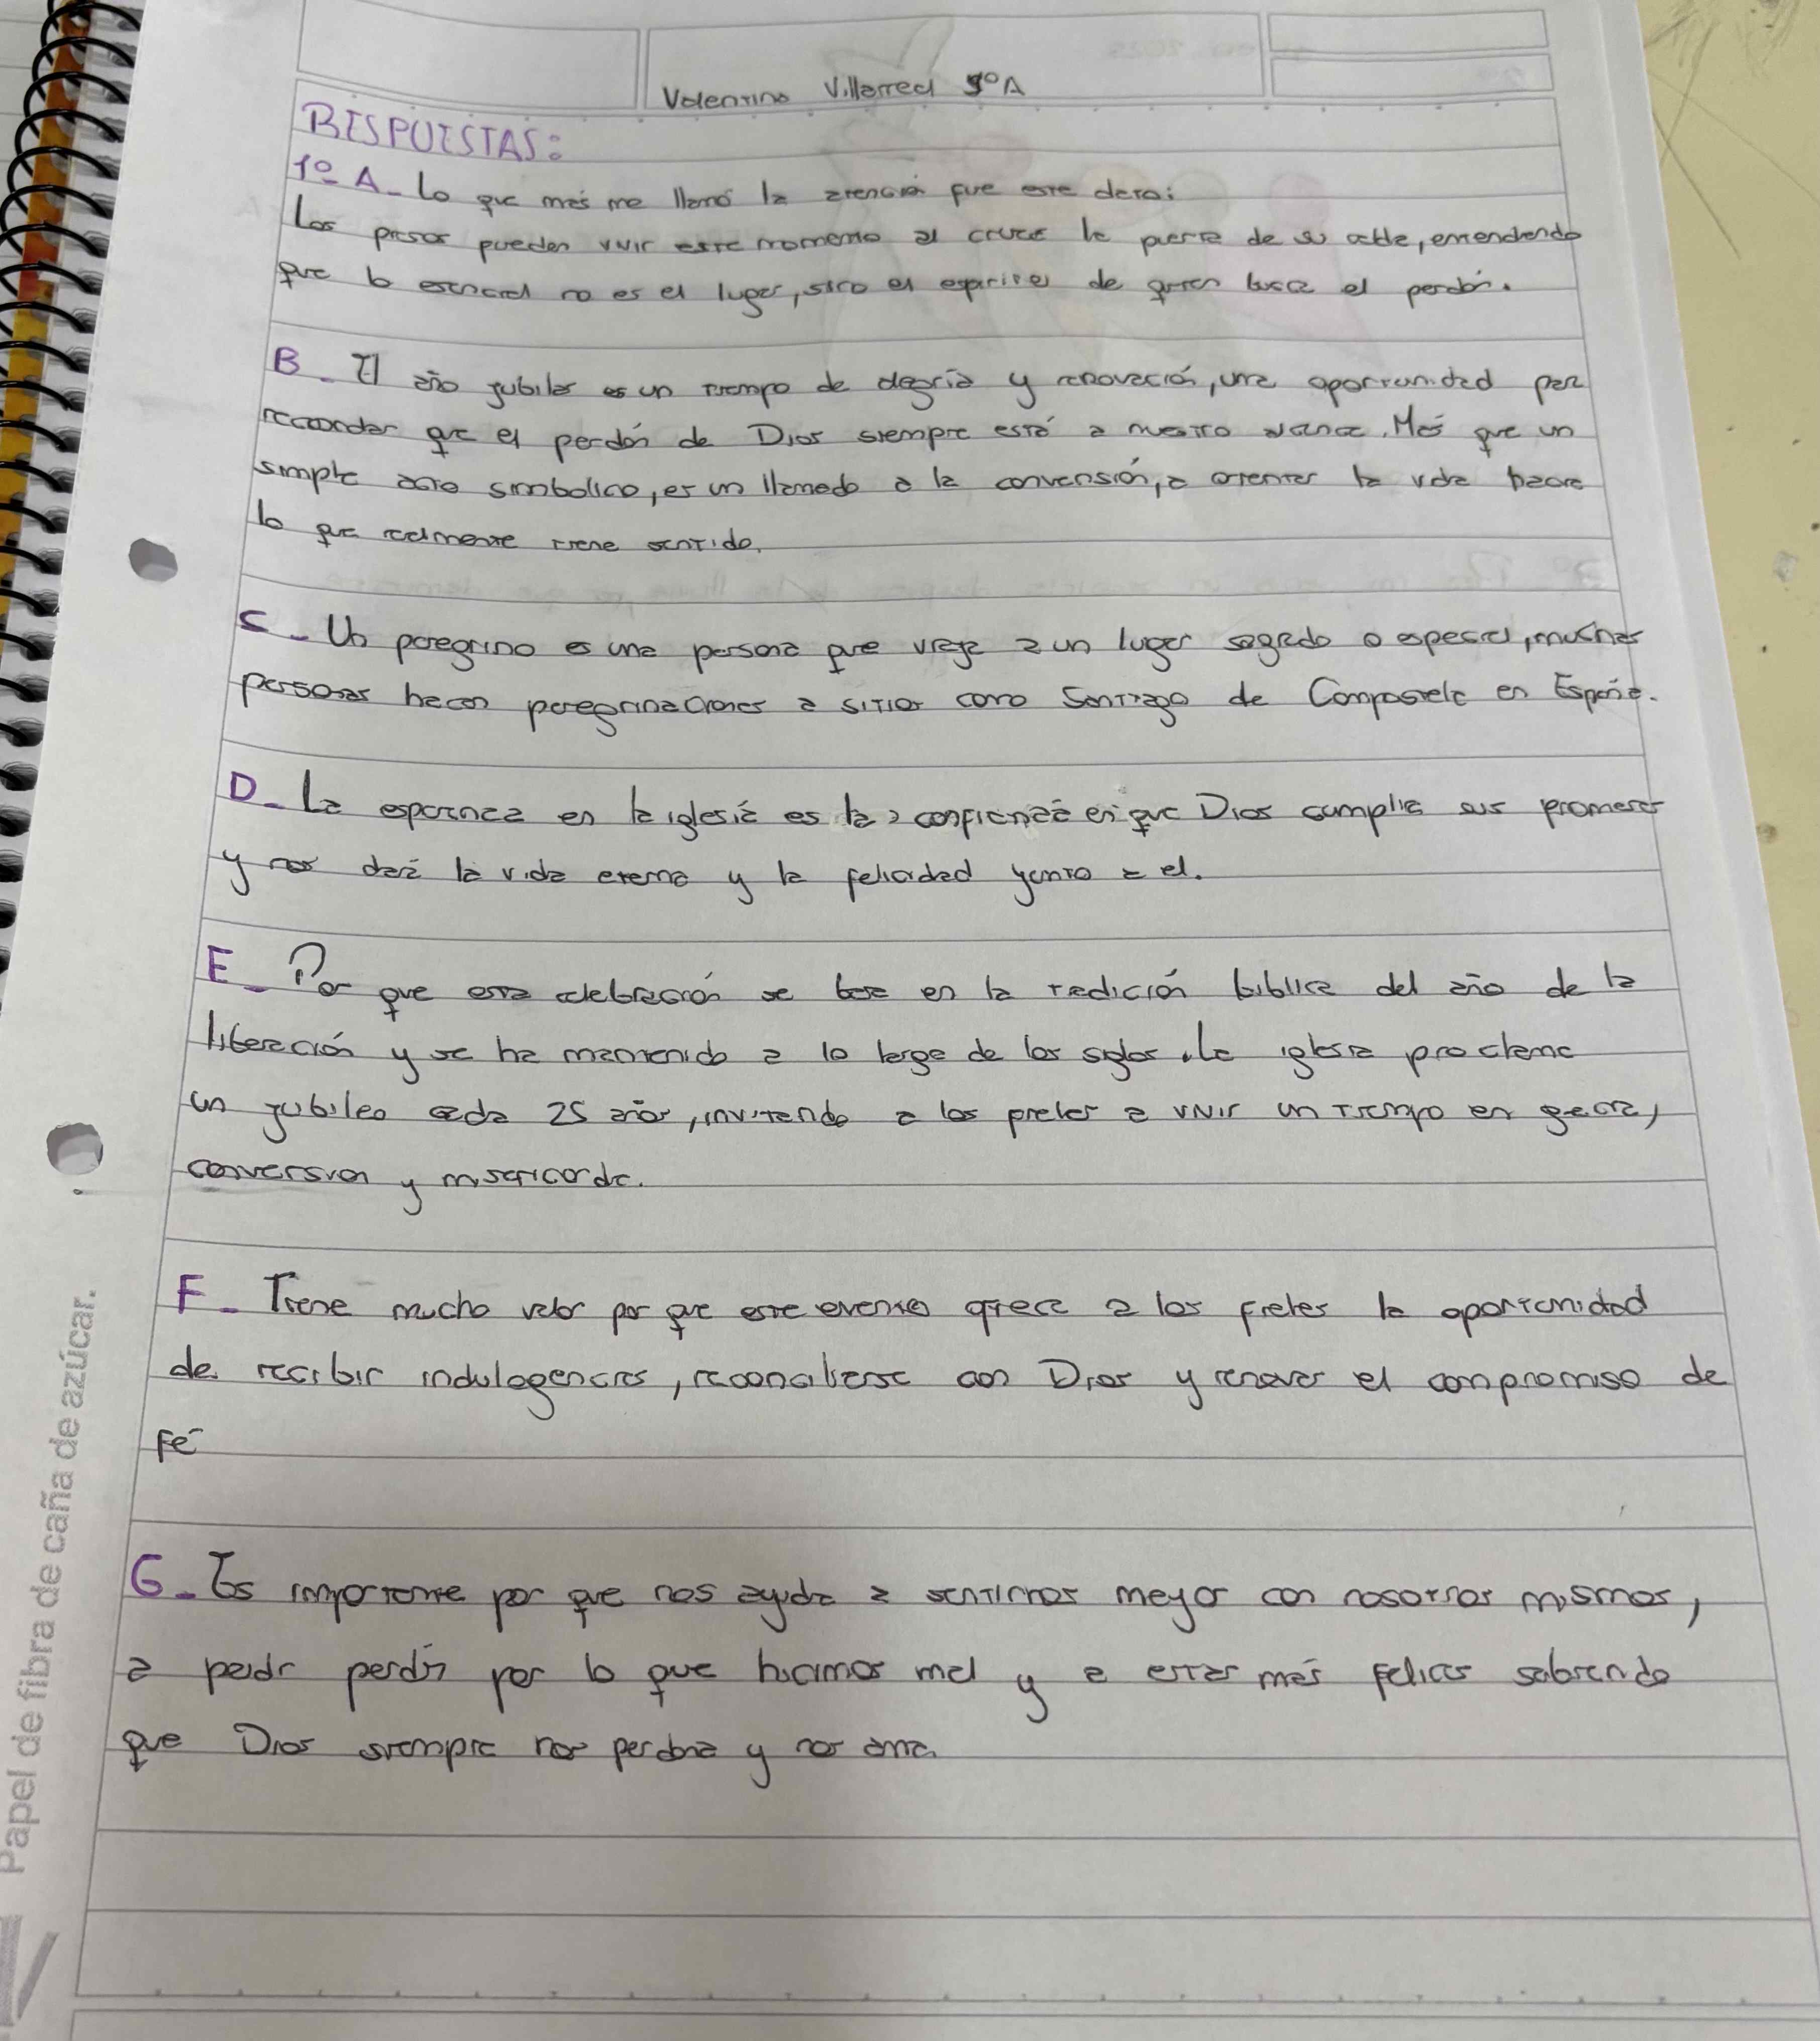 Valentino Villarreal 5º A
RESPUESTAS:
1º A_ Lo que más me llamó la atención fue este dato:
Los presos pueden vivir este momento al cruzar la puerta de su celda, entendiendo
que lo esencial no es el lugar, sino el espíritu de quien busca el perdón.
B_ El año jubilar es un tiempo de alegría y renovación, una oportunidad para
recordar que el perdón de Dios siempre está a nuestro alcance. Más que un
simple acto simbolico, es un llamado a la convensión, a orientar la vida hacia
lo que realmente tiene sentido.
C_ Un peregrino es una persona que viaja a un lugar sagrado o especial, muchas
personas hacen peregrinaciones a sitios como Santiago de Compostela en España.
D_ La esperanza en la iglesia es la confianza en que Dios cumplirá sus promesas
y nos dará la vida eterna y la felicidad yunto a el.
E_ Por que esta celebración se base en la tradición biblica del año de la
liberación y se ha mantenido a lo largo de los siglos. La iglesia proclama
un jubileo cada 25 años, invitando a los fieles a vivir un tiempo en gracia,
conversion y misericordia.
F_ Tiene mucho valor por que este evento ofrece a los fieles la oportunidad
de recibir indulegencias, reconciliarse con Dios y renovar el compromiso de
fé
G_ Es importante por que nos ayuda a sentirnos meyor con nosotros mismos,
a pedir perdón por lo que hicimos mal y a estar más felices sabiendo
que Dios siempre nos perdona y nos ama.
Papel de fibra de caña de azúcar.